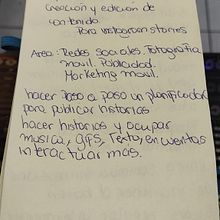 Creación y edición de
contenido
Para instagram stories
Area: Redes sociales, Fotografia
movil. Publicidad.
Marketing movil.
hacer Paso a paso un planificador
para publicar historias
hacer historias y ocupar
musica, gifs, texto, encuestas
interactuar mas.